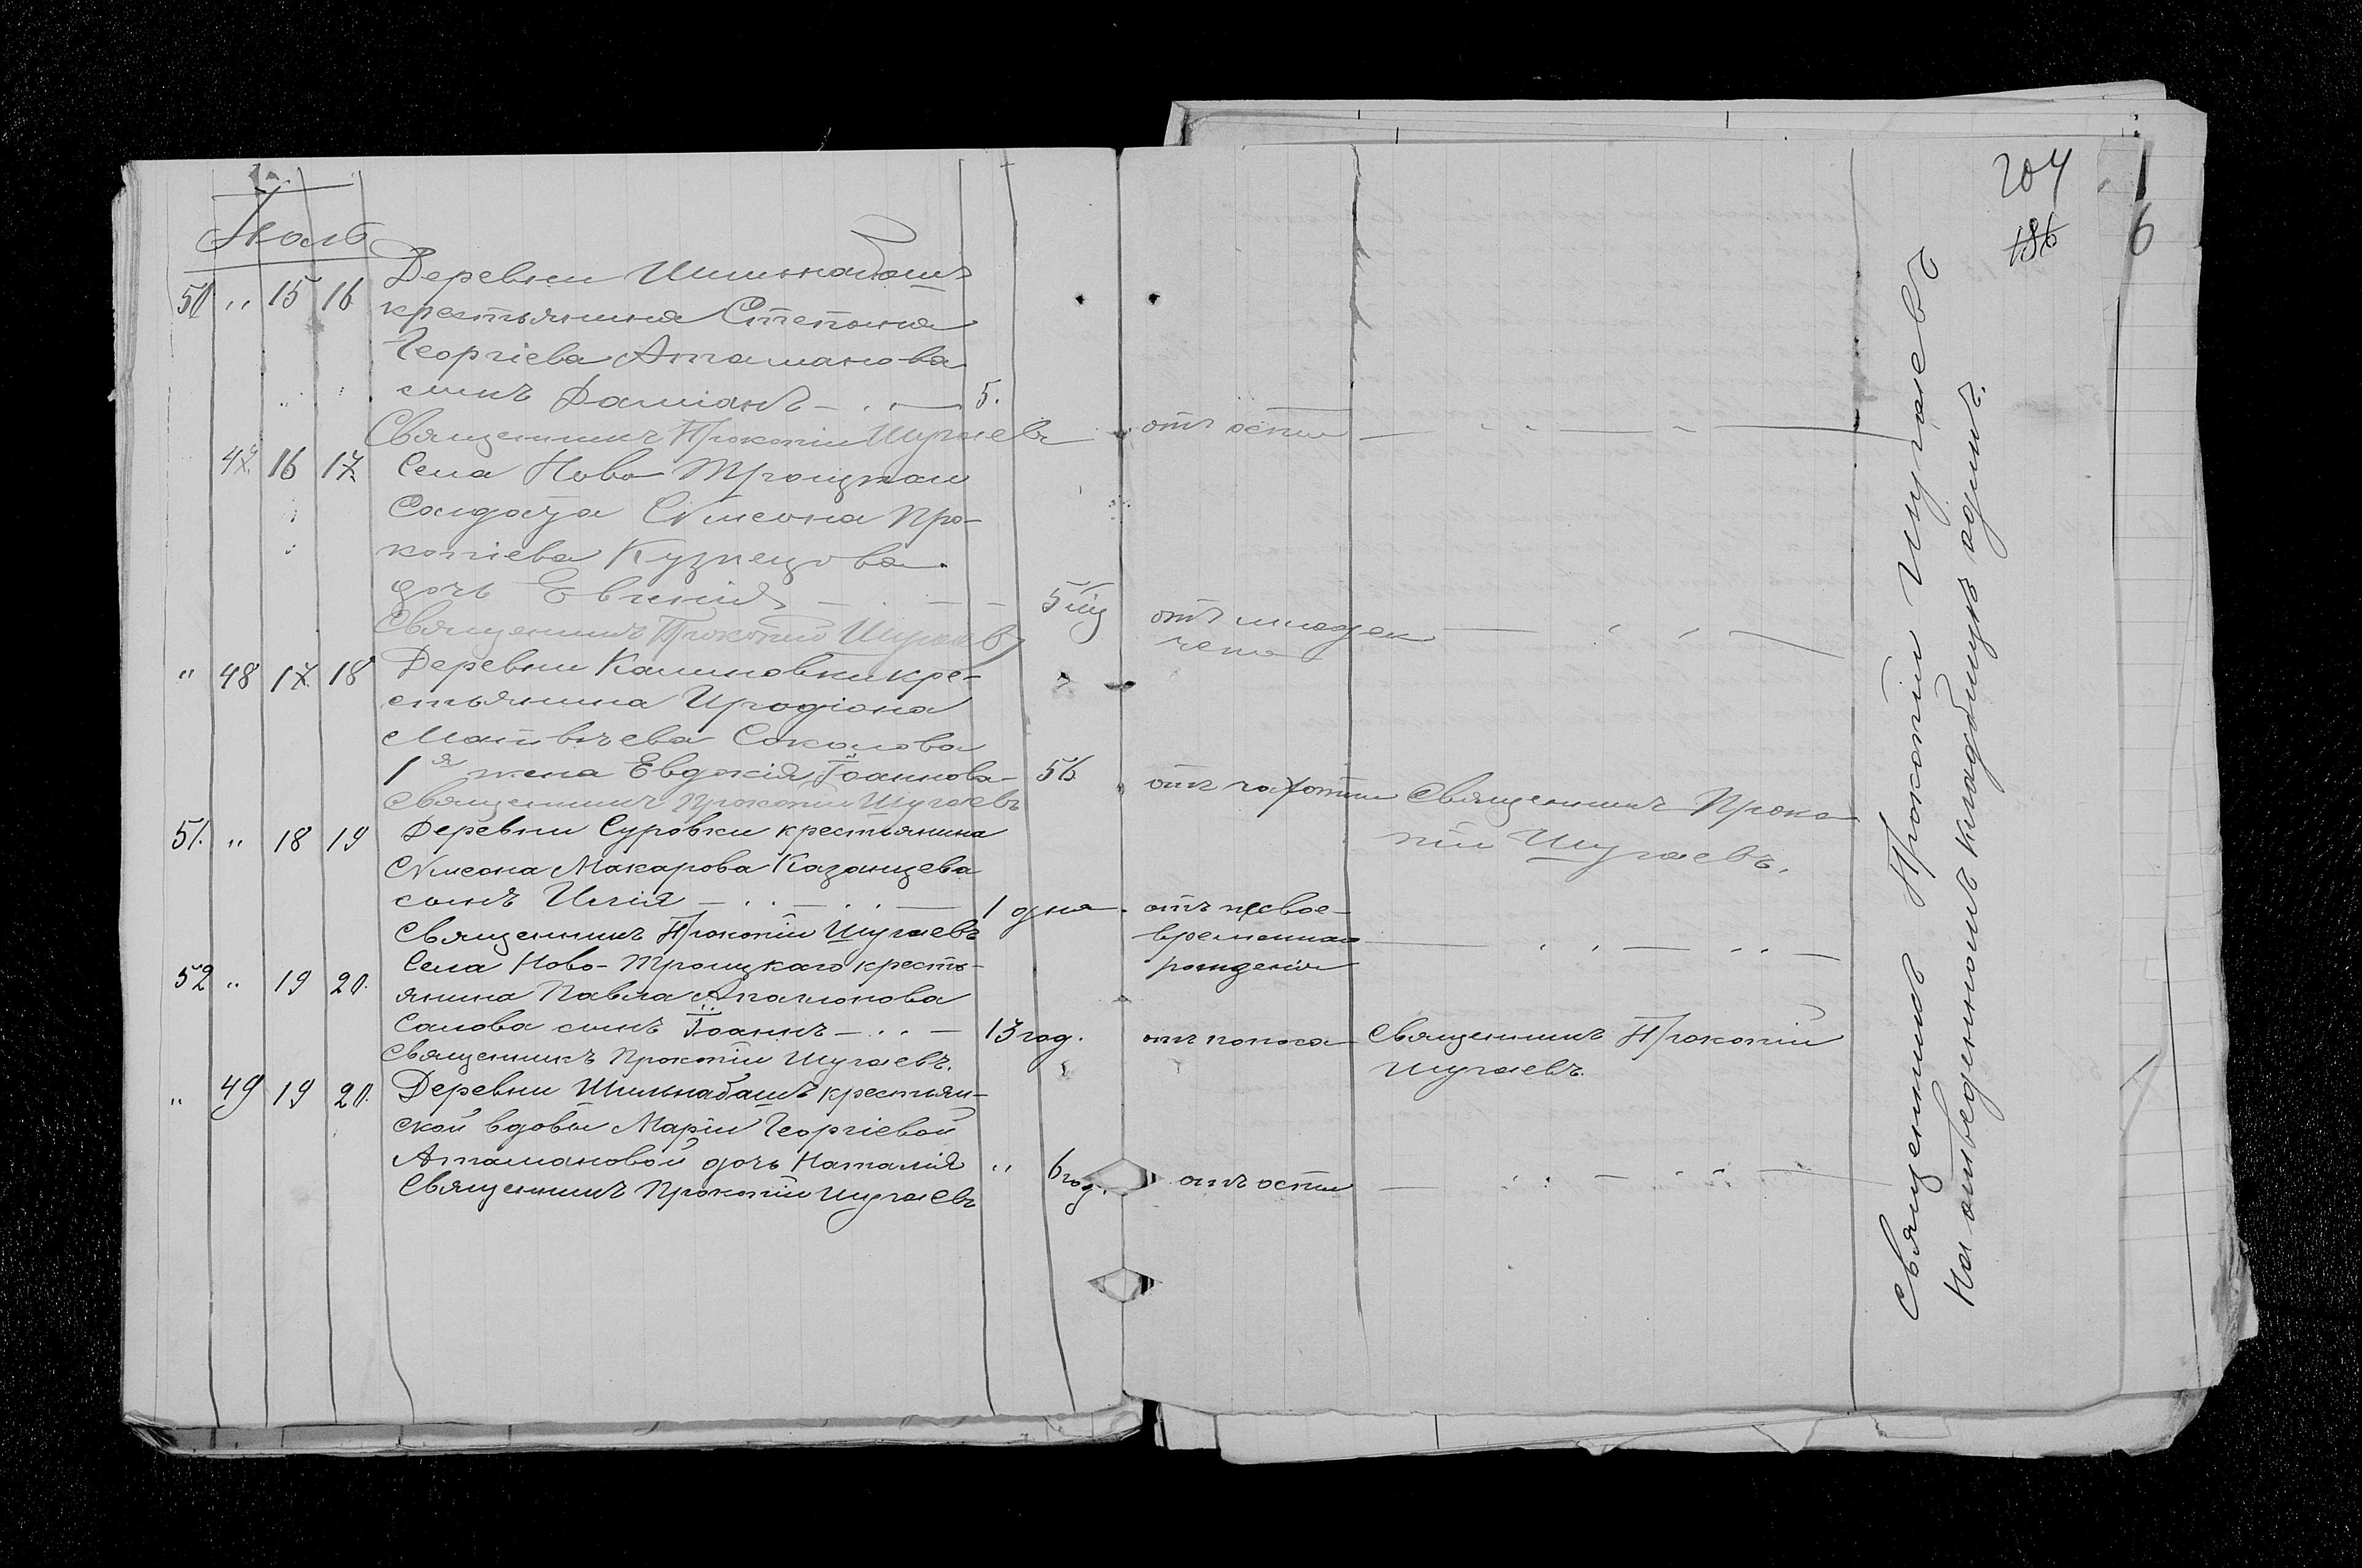 Іюль
50 " 15 16 Деревни Шильнабашъ
крестьянина Степана
Георгіева Атаманова
сынъ Даміанъ - . . - 5.
Священникъ Прокопій Шугаевъ
отъ оспы
47. 16 17. Села Ново Троицкаго
Солдата Сѵмеона Про-
копіева Кузнецова
дочь Евгенія 5 мц
отъ младен
чела
Священникъ Прокопій Шугаевъ
" 48 17. 18 Деревни Калиновки кре-
стьянина Иродіона
Матвѣева Соколова
1я жена Евдокія Іоаннова- 56.
отъ чахотки
Священникъ Проко
пій Шугаевъ.
Священникъ Прокопій Шугаевъ
51. " 18 19 Деревни Суровки крестьянина
Сѵмеона Макарова Казанцева
сынъ Илія - . . - . . - 1 дня.
отъ несвое-
временнаго
рожденія
Священникъ Прокопій Шугаевъ
52 " 19 20. Села Ново-Троицкаго кресть-
янина Павла
сынъ Іоаннъ - . . - 13 год.
отъ поноса
Священникъ Прокопій
Шугаевъ.
Священникъ Прокопій Шугаевъ.
" 49 19 20. Деревни Шильнабашъ крестьян-
ской вдовы Маріи Георгіевой
Атамановой дочь Наталія " 6 год.
отъ оспы
Священникъ Прокопій Шугаевъ
Священникъ Прокопій Шугаевъ
На отведенномъ кладбищѣ
204
186
1
6